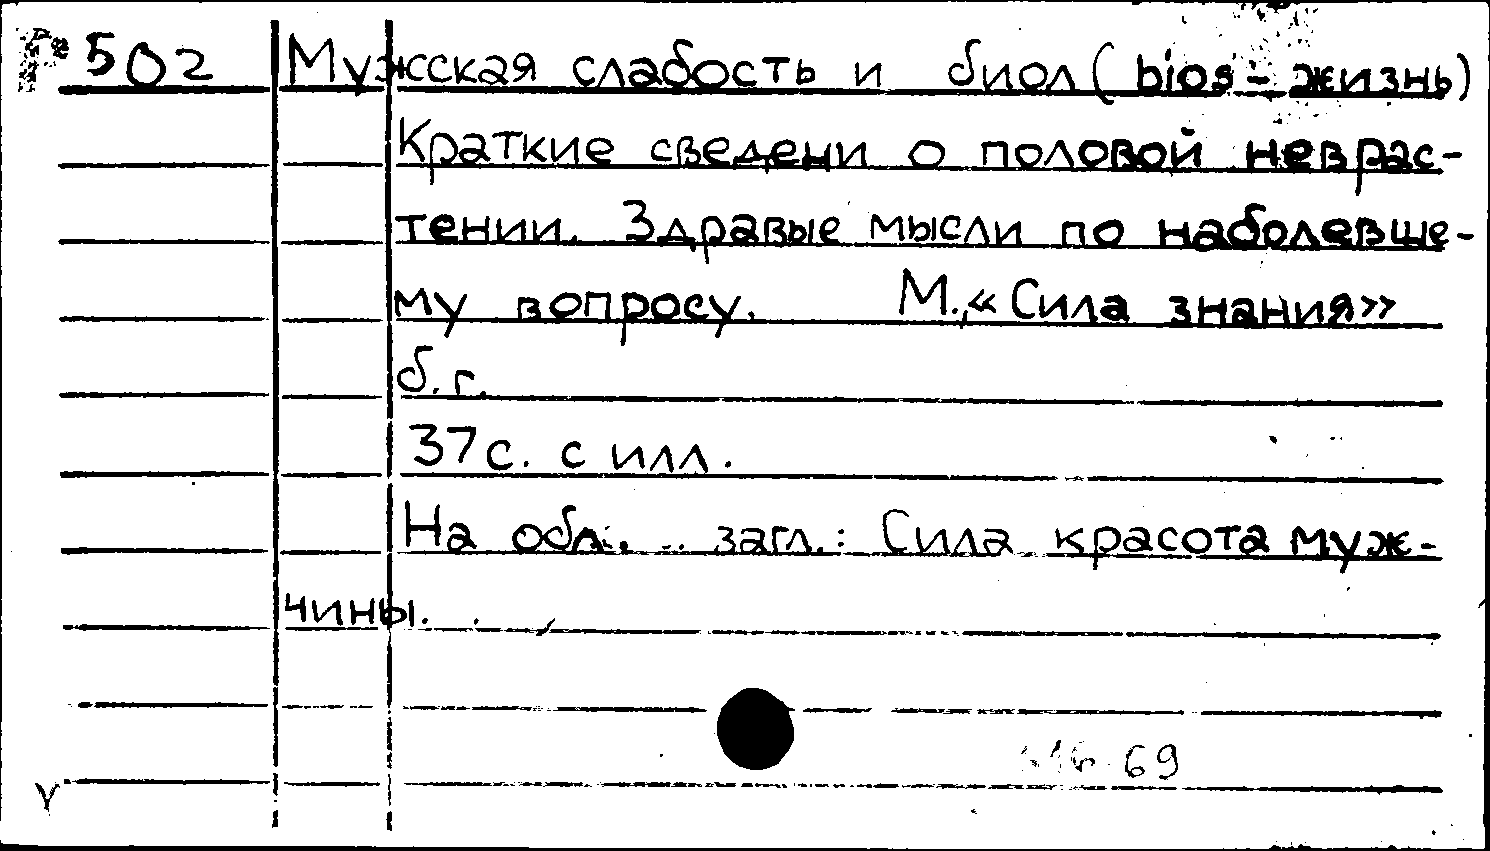 502 Мужсская слабость и биол (bios - жизнь)
Краткие сведени о половой неврас-
тении. Здравые мысли по наболевше-
му вопросу. М., «Сила знания»
б.г.
37с. с илл.
На обл. загл.: Сила красота муж-
чины.
69